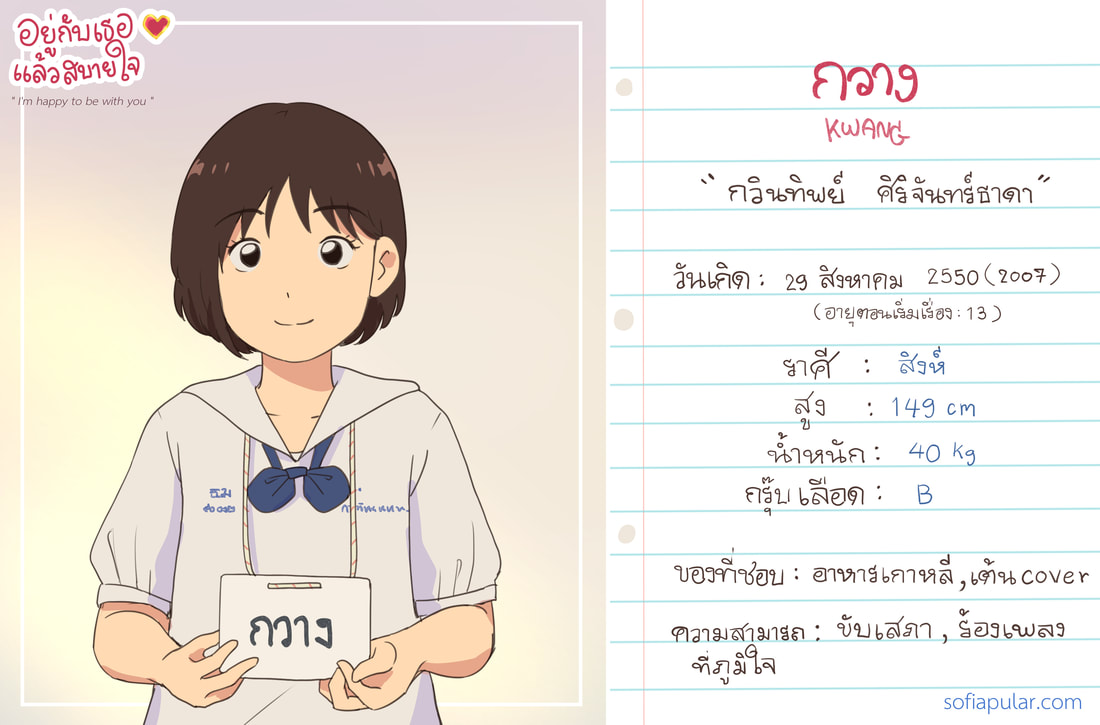 อยู่กับเธอ
แล้วสบายใจ
" I'm happy to be with you "
กวาง
กวาง
KWANG
"กวินทิพย์ ศิริจันทร์ธาดา"
วันเกิด : 29 สิงหาคม 2550 (2007)
(อายุตอนเริ่มเรื่อง : 13)
ราศี : สิงห์
สูง : 149 cm
น้ำหนัก : 40 kg
กรุ๊บเลือด : B
ของที่ชอบ : อาหารเกาหลี, เต้น cover
ความสามารถ : ขับเสภา, ร้องเพลง
ที่ภูมิใจ
sofiapular.com